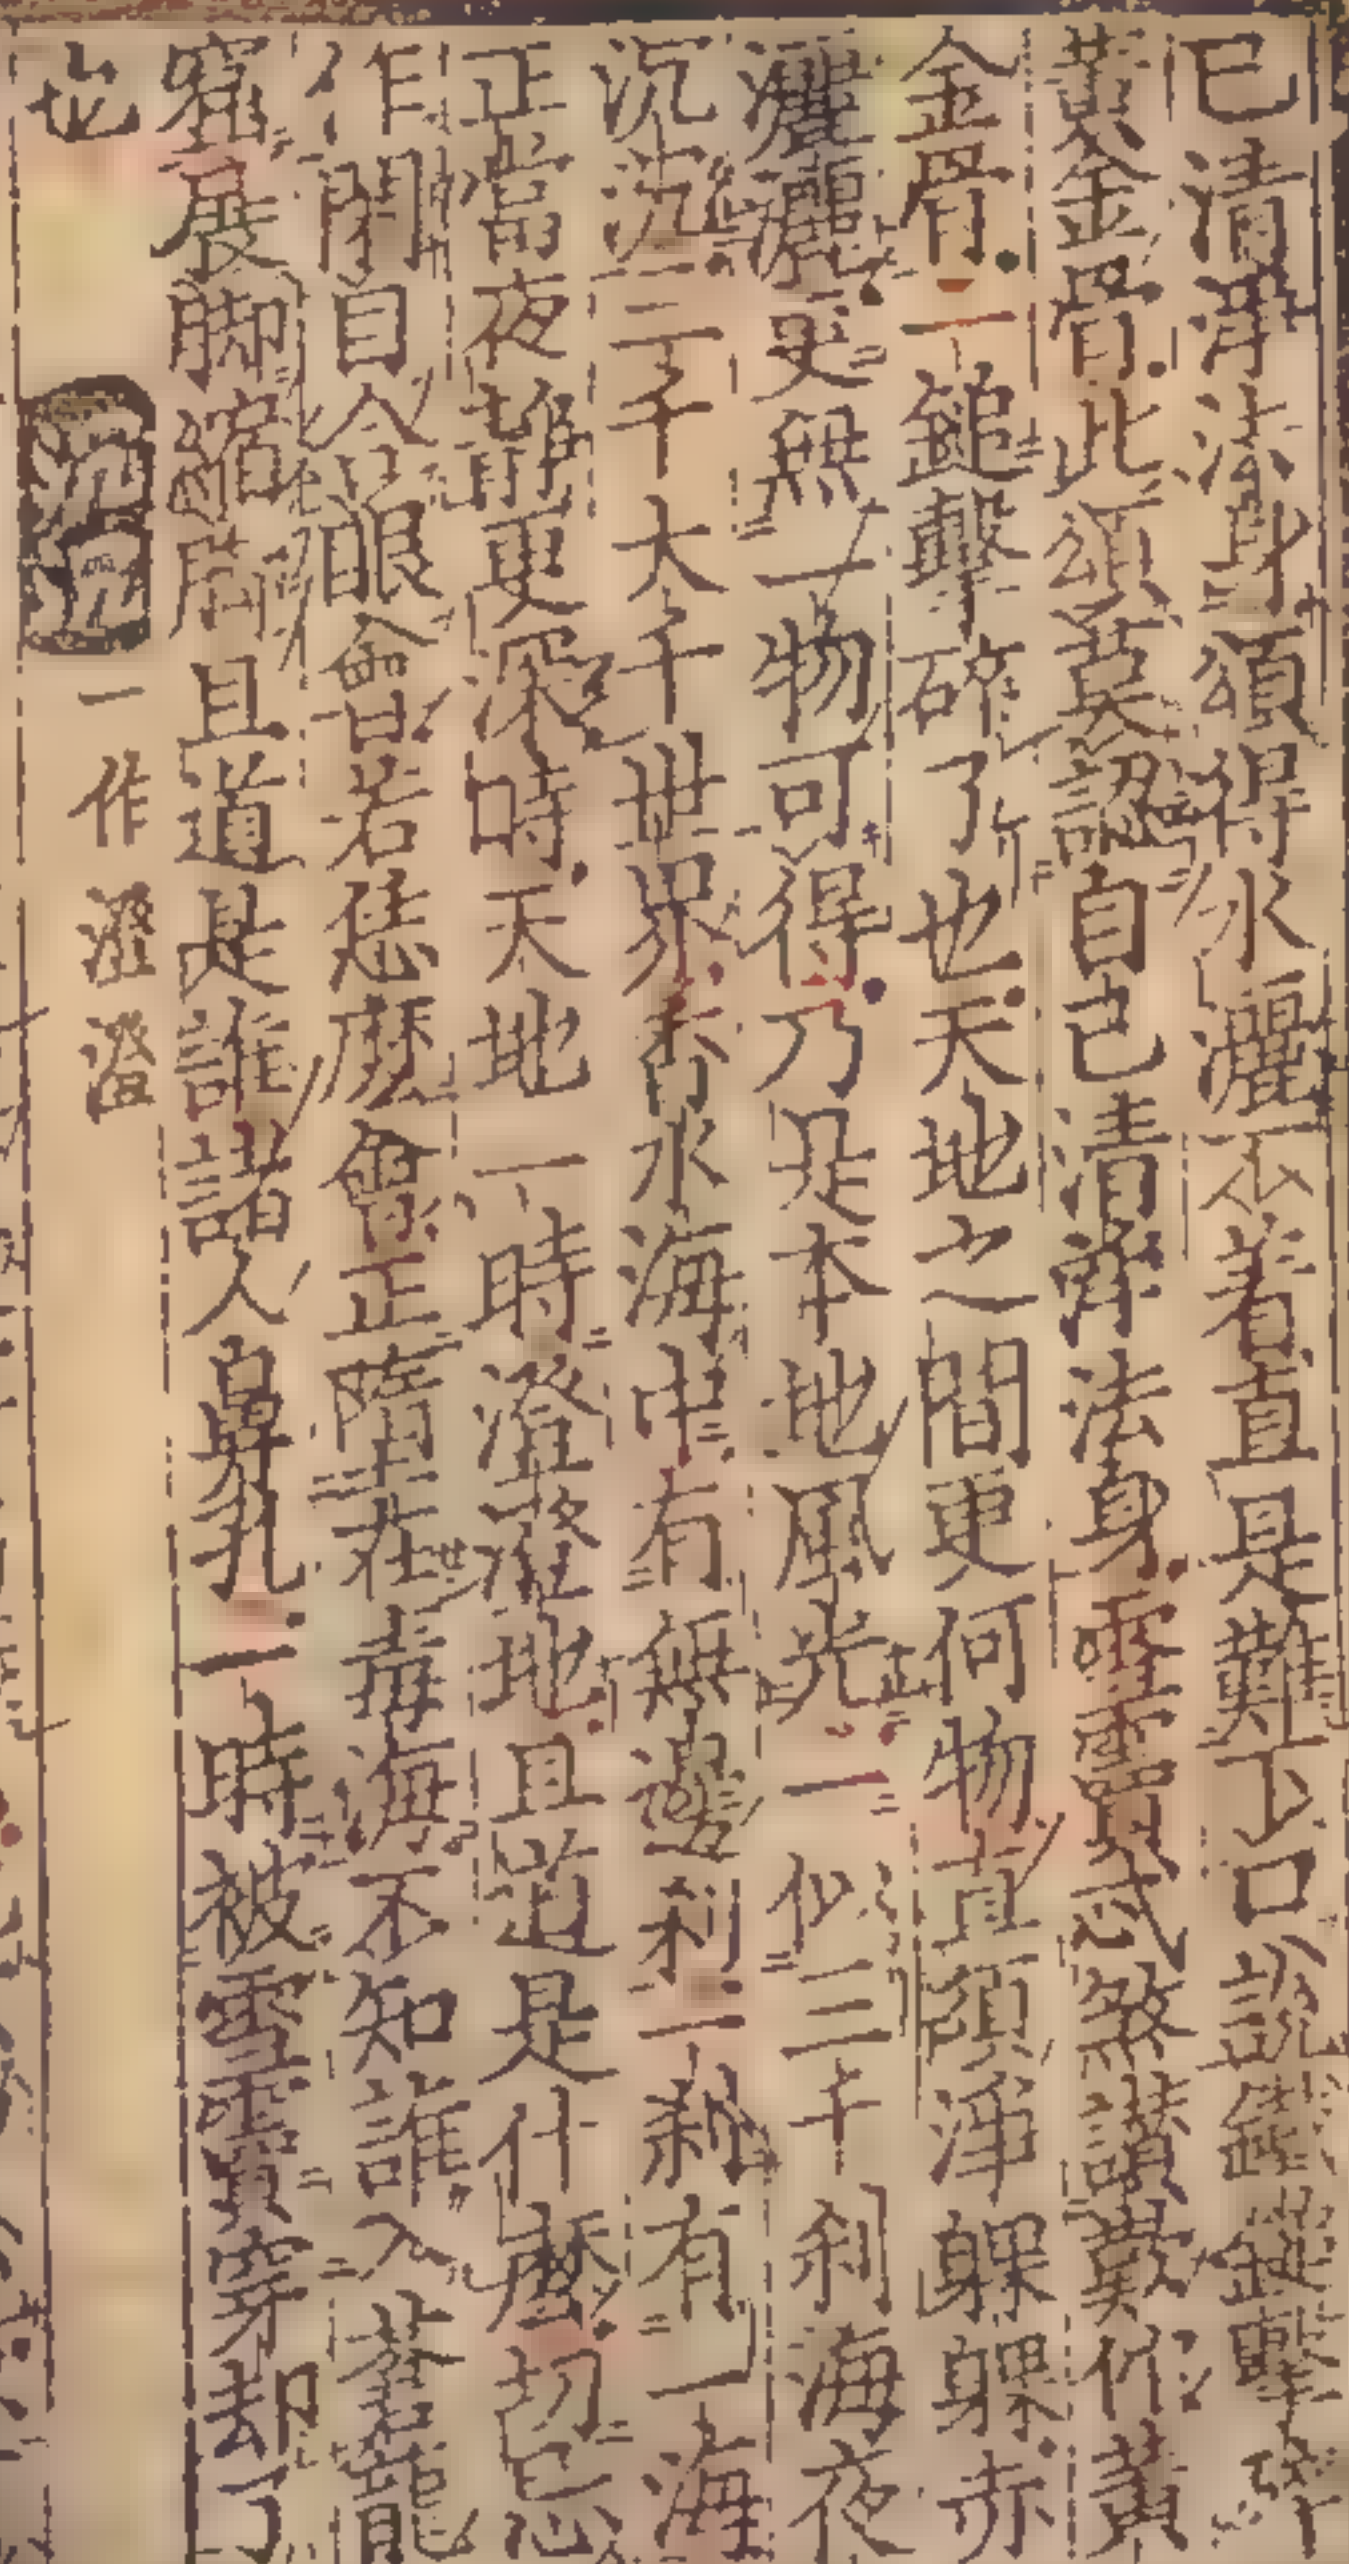 己清淨法身頌得水灑不着直是難下口說鐵鎚擊碎
黃金骨此頌莫認自己清淨法身雪竇忒煞讃歎他黃
金骨一鎚擊碎了也天地之間更何物直須淨躶躶赤
灑灑更無一物可得乃是本地風光一似三千剎海夜
沉沉三千大千世界香水海中有無邊剎一剎有一海
正當夜靜更深時天地一時澄澄地且道是什麼切忌
作閉目合眼會若恁麼會正墮在毒海不知誰入蒼龍
窟展脚縮脚且道是誰諸人鼻孔一時被雪竇穿却了
也 沉沉 一作澄澄